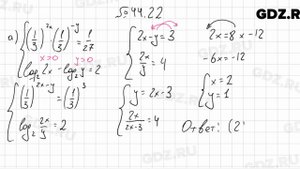 №44.22
GDZ.RU
а) { (1/3)^2x · (1/3)^-y = 1/27
log₂ 2x - log₂ y = 2
x>0 y>0
{ (1/3)^2x-y = (1/3)^3
log₂ 2x/y = 2
{ 2x-y=3
2x/y = 4
{ y = 2x-3
2x/2x-3 = 4
2x = 8x -12
-6x = -12
{ x = 2
y = 1
Ответ: (2
GDZ.RU